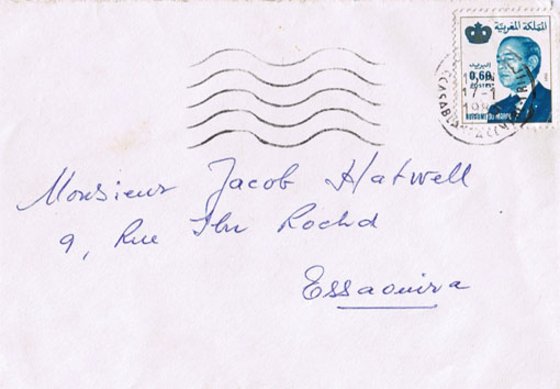 المملكة المغربية
البريد
0,60
POSTES
ROYAUME DU MAROC
17-1
CASABLANCA
Monsieur Jacob Hatwell
9, Rue Ibn Rochd
Essaouira